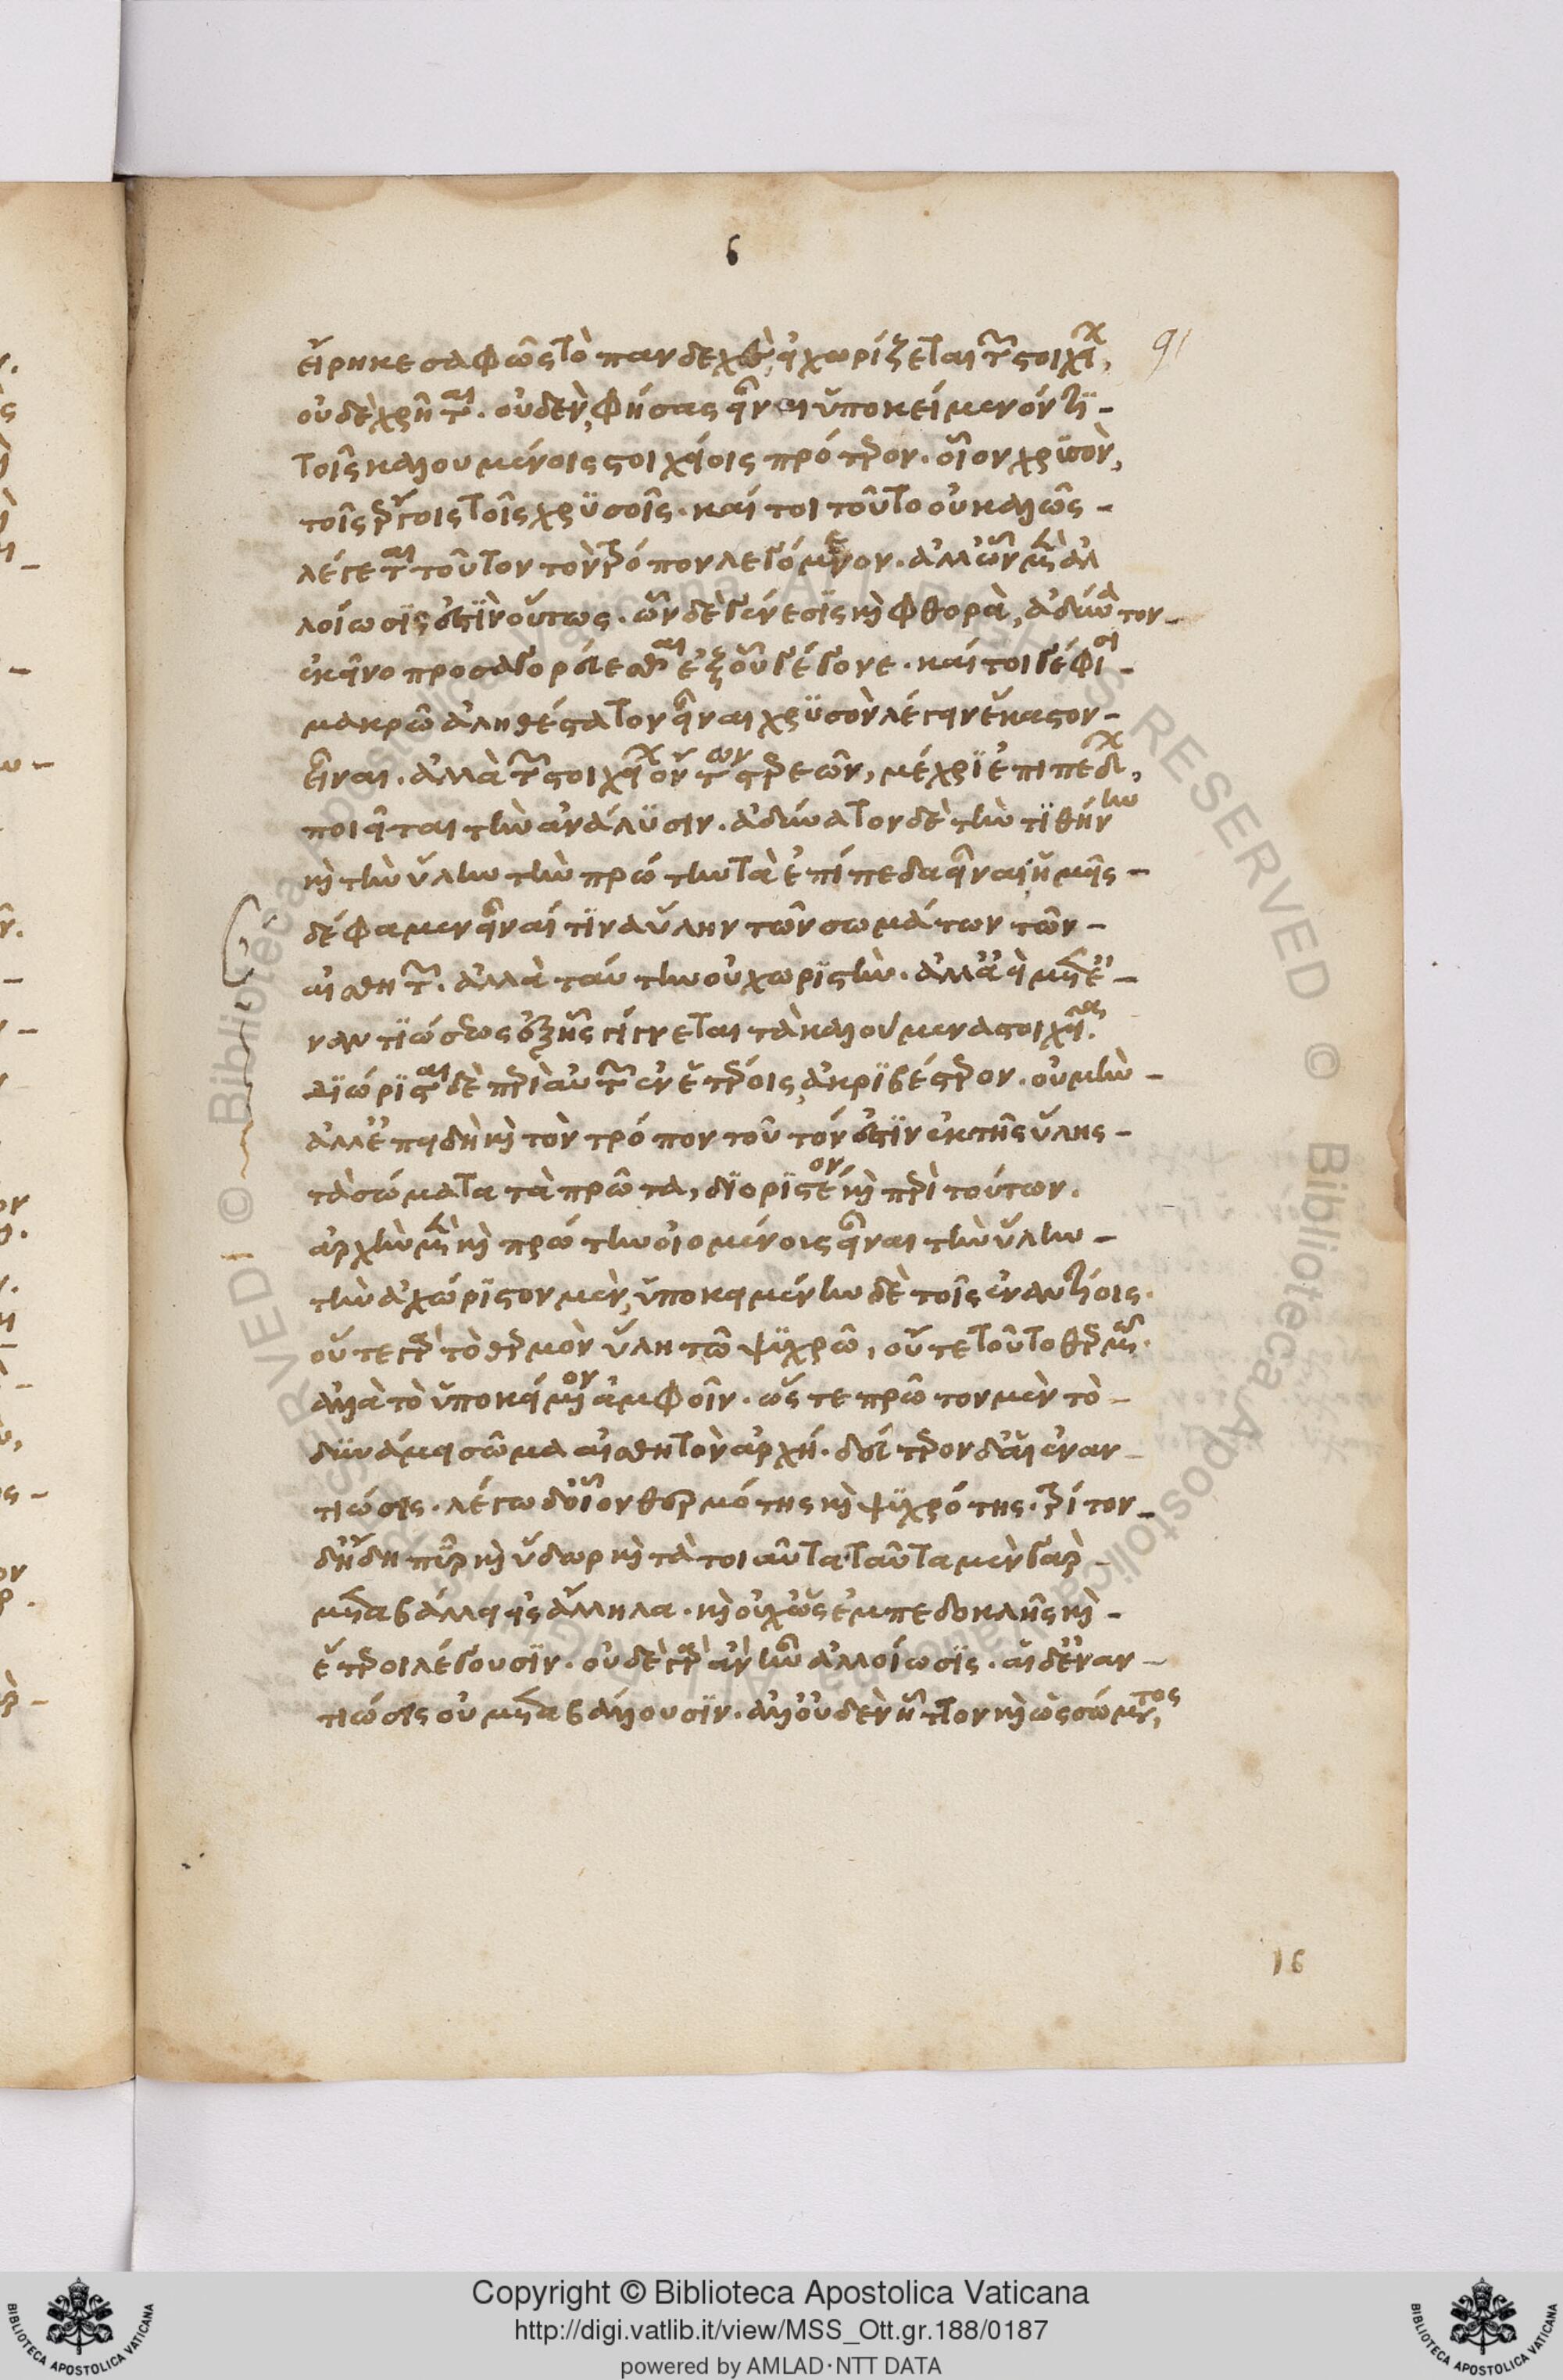 6
91
εἴρηκε σαφῶς τὸ πανδεχὲς, εἰ χωρίζεται τῶν στοιχείων,
οὐδὲ χρῆται. οὐδὲν, φήσας εἶναι ὑποκείμενόν τι
τοῖς καλουμένοις στοιχείοις πρότερον. οἷον χρυσὸν,
τοῖς ἔργοις τοῖς χρυσοῖς. καί τοι τοῦτο οὐ καλῶς
λέγεται τοῦτον τὸν τρόπον λεγόμενον. ἀλλ' ὧν μὲν ἀλ
λοίωσις ἐστὶν οὕτως. ὧν δὲ γένεσις καὶ φθορὰ, ἀδύνατον
ἐκεῖνο προσαγορεύεσθαι ἐξ οὗ γέγονε. καί τοι γέ φησι
μακρῶ ἀληθέστατον εἶναι χρυσὸν λέγειν ἕκαστον
εἶναι. ἀλλὰ τῶν στοιχείων ὄντων στερεῶν, μέχρι ἐπιπέδων,
ποιεῖται τὴν ἀνάλυσιν. ἀδύνατον δὲ τὴν τιθήνην
καὶ τὴν ὕλην τὴν πρώτην τὰ ἐπίπεδα εἶναι, ἡμεῖς
δέ φαμεν εἶναί τινα ὕλην τῶν σωμάτων τῶν
αἰσθητῶν. ἀλλὰ ταύτην οὐ χωριστὴν. ἀλλ' ἀεὶ μετ' ἐ
ναντιώσεως ἐξ ἧς γίγνεται τὰ καλούμενα στοιχεῖα.
διώρισται δὲ περὶ αὐτῶν ἐν ἑτέροις, ἀκριβέστερον. οὐ μὴν
ἀλλ' ἐπειδὴ καὶ τὸν τρόπον τοῦτόν ἐστιν ἐκ τῆς ὕλης
τὰ σώματα τὰ πρῶτα, διοριστέον καὶ περὶ τούτων.
ἀρχὴν μὲν καὶ πρώτην οἰομένοις εἶναι τὴν ὕλην
τὴν ἀχώριστον μὲν, ὑποκειμένην δὲ τοῖς ἐναντίοις.
οὔτε γὰρ τὸ θερμὸν ὕλη τῶ ψυχρῶ, οὔτε τοῦτο θερμῶ.
ἀλλὰ τὸ ὑποκείμενον ἀμφοῖν. ὥστε πρῶτον μὲν τὸ
δυνάμει σῶμα αἰσθητὸν ἀρχή. δεύτερον δ' αἱ ἐναν
τιώσεις. λέγω δ' οἷον θερμότης καὶ ψυχρότης. τρίτον
δ' ἤδη πῦρ καὶ ὕδωρ καὶ τὰ τοιαῦτα. ταῦτα μὲν γὰρ
μεταβάλλει εἰς ἄλληλα. καὶ οὐχ ὡς ἐμπεδοκλῆς καὶ
ἕτεροι λέγουσιν. οὐδὲ γὰρ ἂν ἦν ἀλλοίωσις. αἱ δ' ἐναν
τιώσεις οὐ μεταβάλλουσιν. ἀλλ' οὐδὲν ἧττον καὶ ὡς σώματος,
16
Copyright © Biblioteca Apostolica Vaticana
http://digi.vatlib.it/view/MSS_Ott.gr.188/0187
powered by AMLAD·NTT DATA